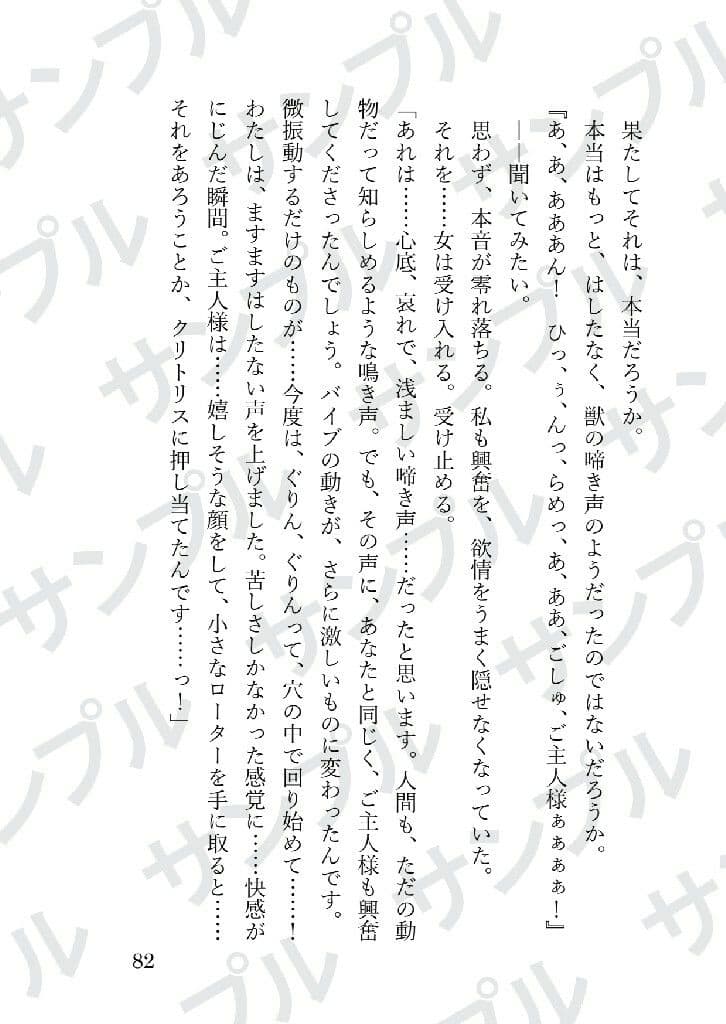 果たしてそれは、本当だろうか。
本当はもっと、はしたなく、獣の啼き声のようだったのではないだろうか。
『あ、あ、あああん!　ひっ、ぅ、んっ、らめっ、あ、ああ、ごしゅ、ご主人様ぁぁぁぁ!』
――聞いてみたい。
思わず、本音が零れ落ちる。私も興奮を、欲情をうまく隠せなくなっていた。
それを……女は受け入れる。受け止める。
「あれは……心底、哀れで、浅ましい啼き声……だったと思います。人間も、ただの動
物だって知らしめるような鳴き声。でも、その声に、あなたと同じく、ご主人様も興奮
してくださったんでしょう。バイブの動きが、さらに激しいものに変わったんです。
微振動するだけのものが……今度は、ぐりん、ぐりんって、穴の中で回り始めて……!
わたしは、ますますはしたない声を上げました。苦しさしかなかった感覚に……快感が
にじんだ瞬間。ご主人様は……嬉しそうな顔をして、小さなローターを手に取ると……
それをあろうことか、クリトリスに押し当てたんです……っ!」
82
サンプル
サンプル
サンプル
サンプル
サンプル
サンプル
サンプル
サンプル
サンプル
サンプル
サンプル
サンプル